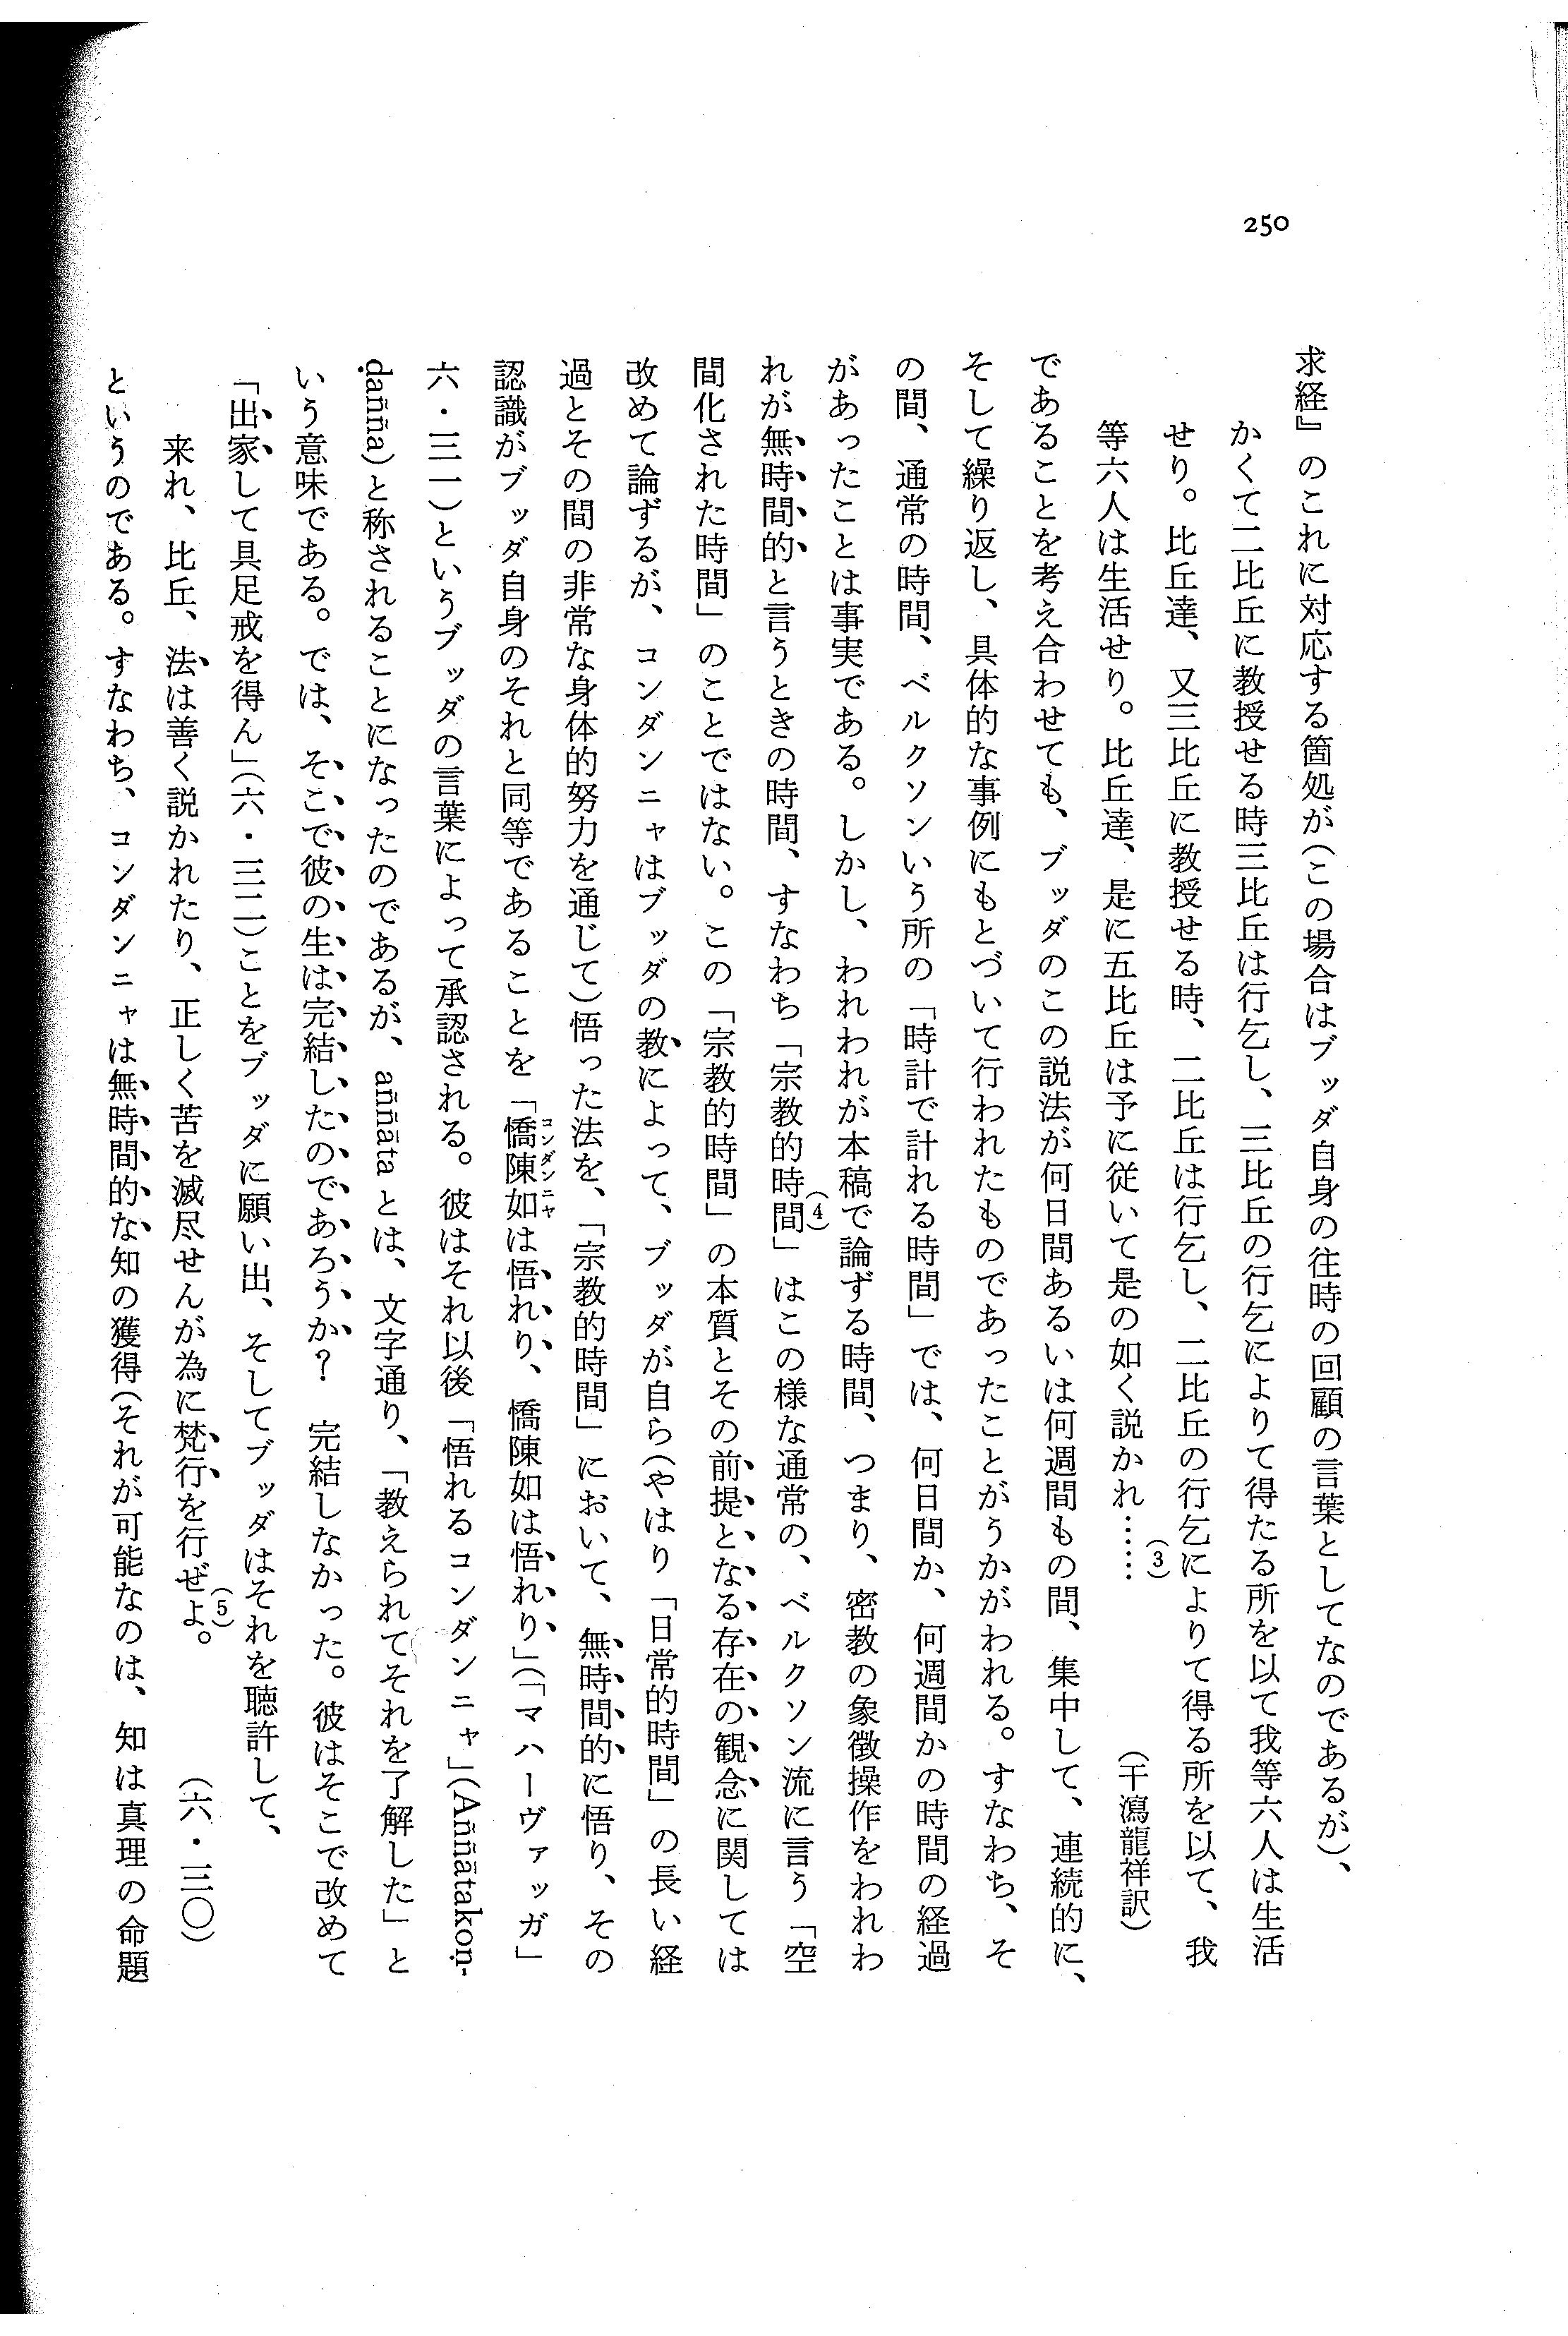 250
求経』のこれに対応する箇処が(この場合はブッダ自身の往時の回顧の言葉としてなのであるが)、
かくて二比丘に教授せる時三比丘は行乞し、三比丘の行乞によりて得たる所を以て我等六人は生活
せり。比丘達、又三比丘に教授せる時、二比丘は行乞し、二比丘の行乞によりて得る所を以て、我
等六人は生活せり。比丘達、是に五比丘は予に従いて是の如く説かれ……(3) (干瀉龍祥訳)
であることを考え合わせても、ブッダのこの説法が何日間あるいは何週間もの間、集中して、連続的に、
そして繰り返し、具体的な事例にもとづいて行われたものであったことがうかがわれる。すなわち、そ
の間、通常の時間、ベルクソンいう所の「時計で計れる時間」では、何日間か、何週間かの時間の経過
があったことは事実である。しかし、われわれが本稿で論ずる時間、つまり、密教の象徴操作をわれわ
れが無時間的と言うときの時間、すなわち「宗教的時間(4)」はこの様な通常の、ベルクソン流に言う「空
間化された時間」のことではない。この「宗教的時間」の本質とその前提となる存在の観念に関しては
改めて論ずるが、コンダンニャはブッダの教によって、ブッダが自ら(やはり「日常的時間」の長い経
過とその間の非常な身体的努力を通じて)悟った法を、「宗教的時間」において、無時間的に悟り、その
認識がブッダ自身のそれと同等であることを「憍陳如コンダンニャは悟れり、憍陳如は悟れり」(「マハーヴァッガ」
六・三一)というブッダの言葉によって承認される。彼はそれ以後「悟れるコンダンニャ」(Aññātakoṇ-
ḍañña)と称されることになったのであるが、aññāta とは、文字通り、「教えられてそれを了解した」と
いう意味である。では、そこで彼の生は完結したのであろうか? 完結しなかった。彼はそこで改めて
「出家して具足戒を得ん」(六・三二)ことをブッダに願い出、そしてブッダはそれを聴許して、
来れ、比丘、法は善く説かれたり、正しく苦を滅尽せんが為に梵行を行ぜよ(5)。 (六・三〇)
というのである。すなわち、コンダンニャは無時間的な知の獲得(それが可能なのは、知は真理の命題